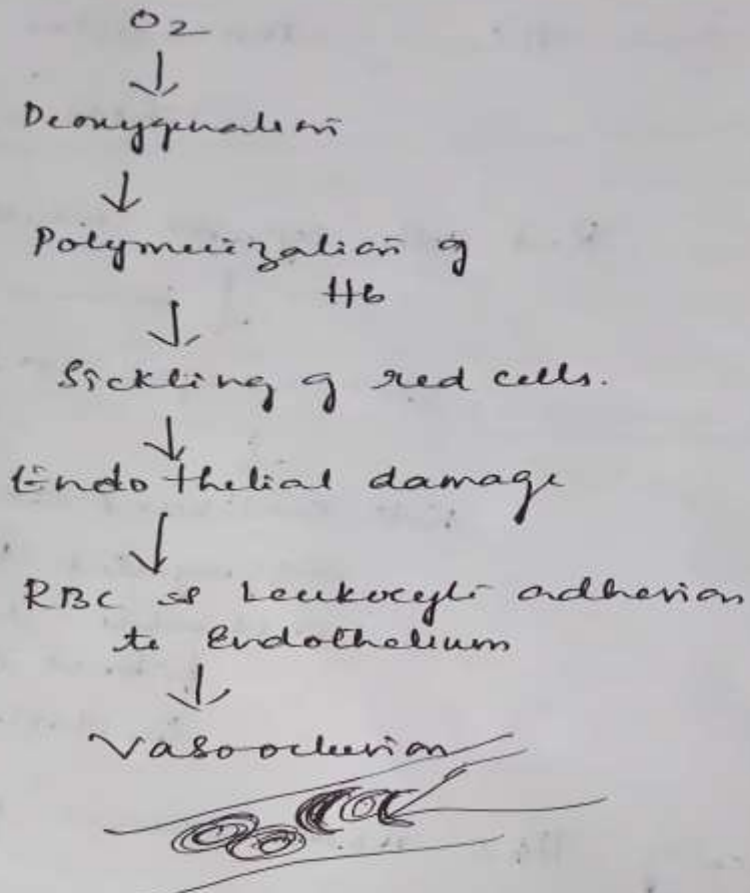 O2
↓
Deoxygenation
↓
Polymerization of
Hb
↓
Sickling of red cells.
↓
Endothelial damage
↓
RBC & Leukocyte adhesion
to Endothelium
↓
Vasoocclusion